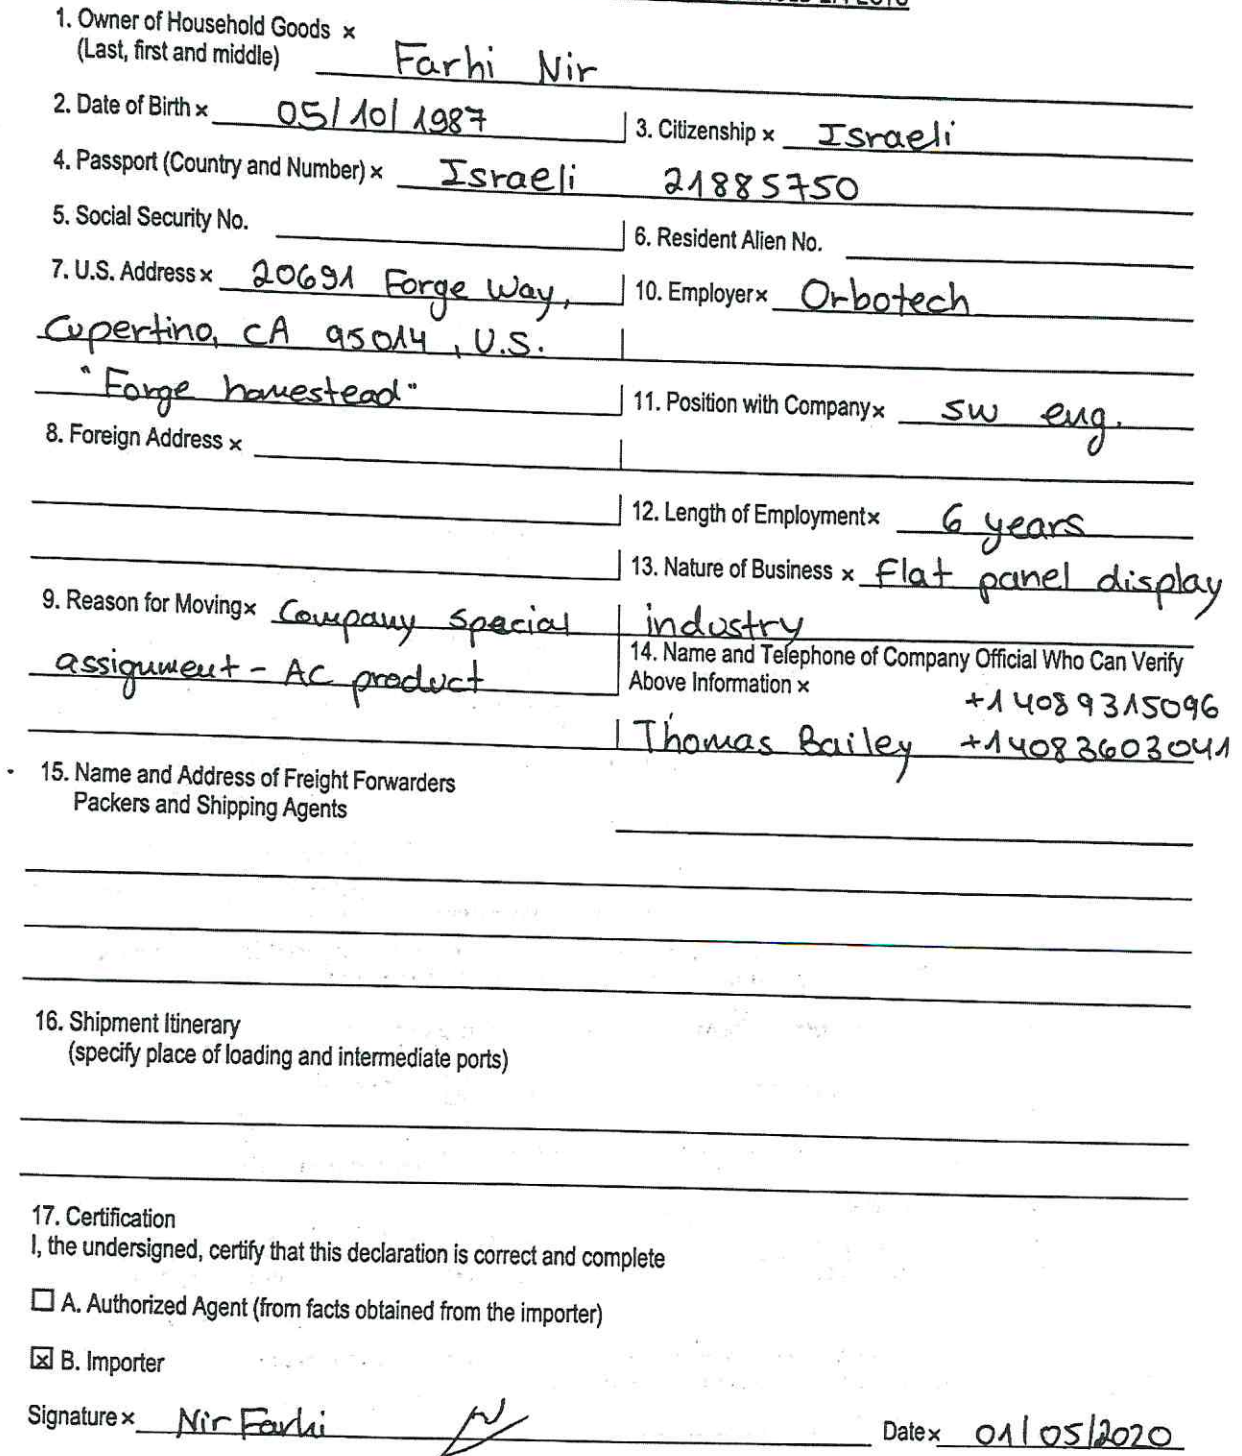 1. Owner of Household Goods ×
(Last, first and middle) Farhi Nir
2. Date of Birth × 05/10/1987 3. Citizenship × Israeli
4. Passport (Country and Number) × Israeli 21885750
5. Social Security No. 6. Resident Alien No.
7. U.S. Address × 20691 Forge Way, 10. Employer× Orbotech
Cupertino, CA 95014, U.S.
"Forge homestead" 11. Position with Company× SW eng.
8. Foreign Address ×
12. Length of Employment× 6 years
13. Nature of Business × Flat panel display
9. Reason for Moving× Company special industry
assignment - AC product 14. Name and Telephone of Company Official Who Can Verify
Above Information × +14089315096
Thomas Bailey +14083603041
15. Name and Address of Freight Forwarders
Packers and Shipping Agents
16. Shipment Itinerary
(specify place of loading and intermediate ports)
17. Certification
I, the undersigned, certify that this declaration is correct and complete
A. Authorized Agent (from facts obtained from the importer)
☒ B. Importer
Signature × Nir Farhi Date× 01/05/2020